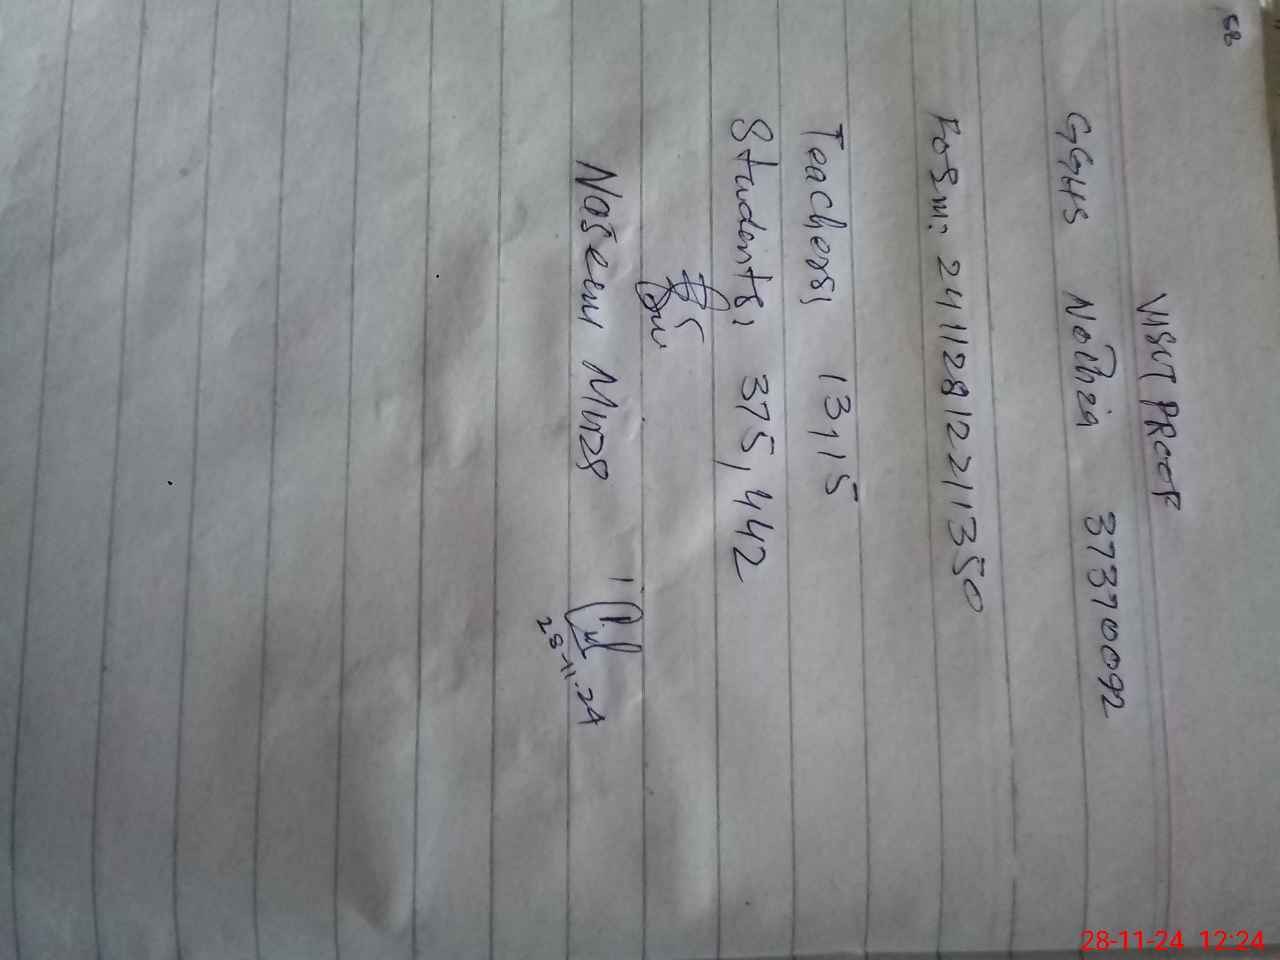 58
VISIT PROOF
GGHS Nothia 37370092
Form: 24112812211350
Teachers; 13,15
Students; 375,442
Naseem Munz8
28-11-24
28-11-24 12:24